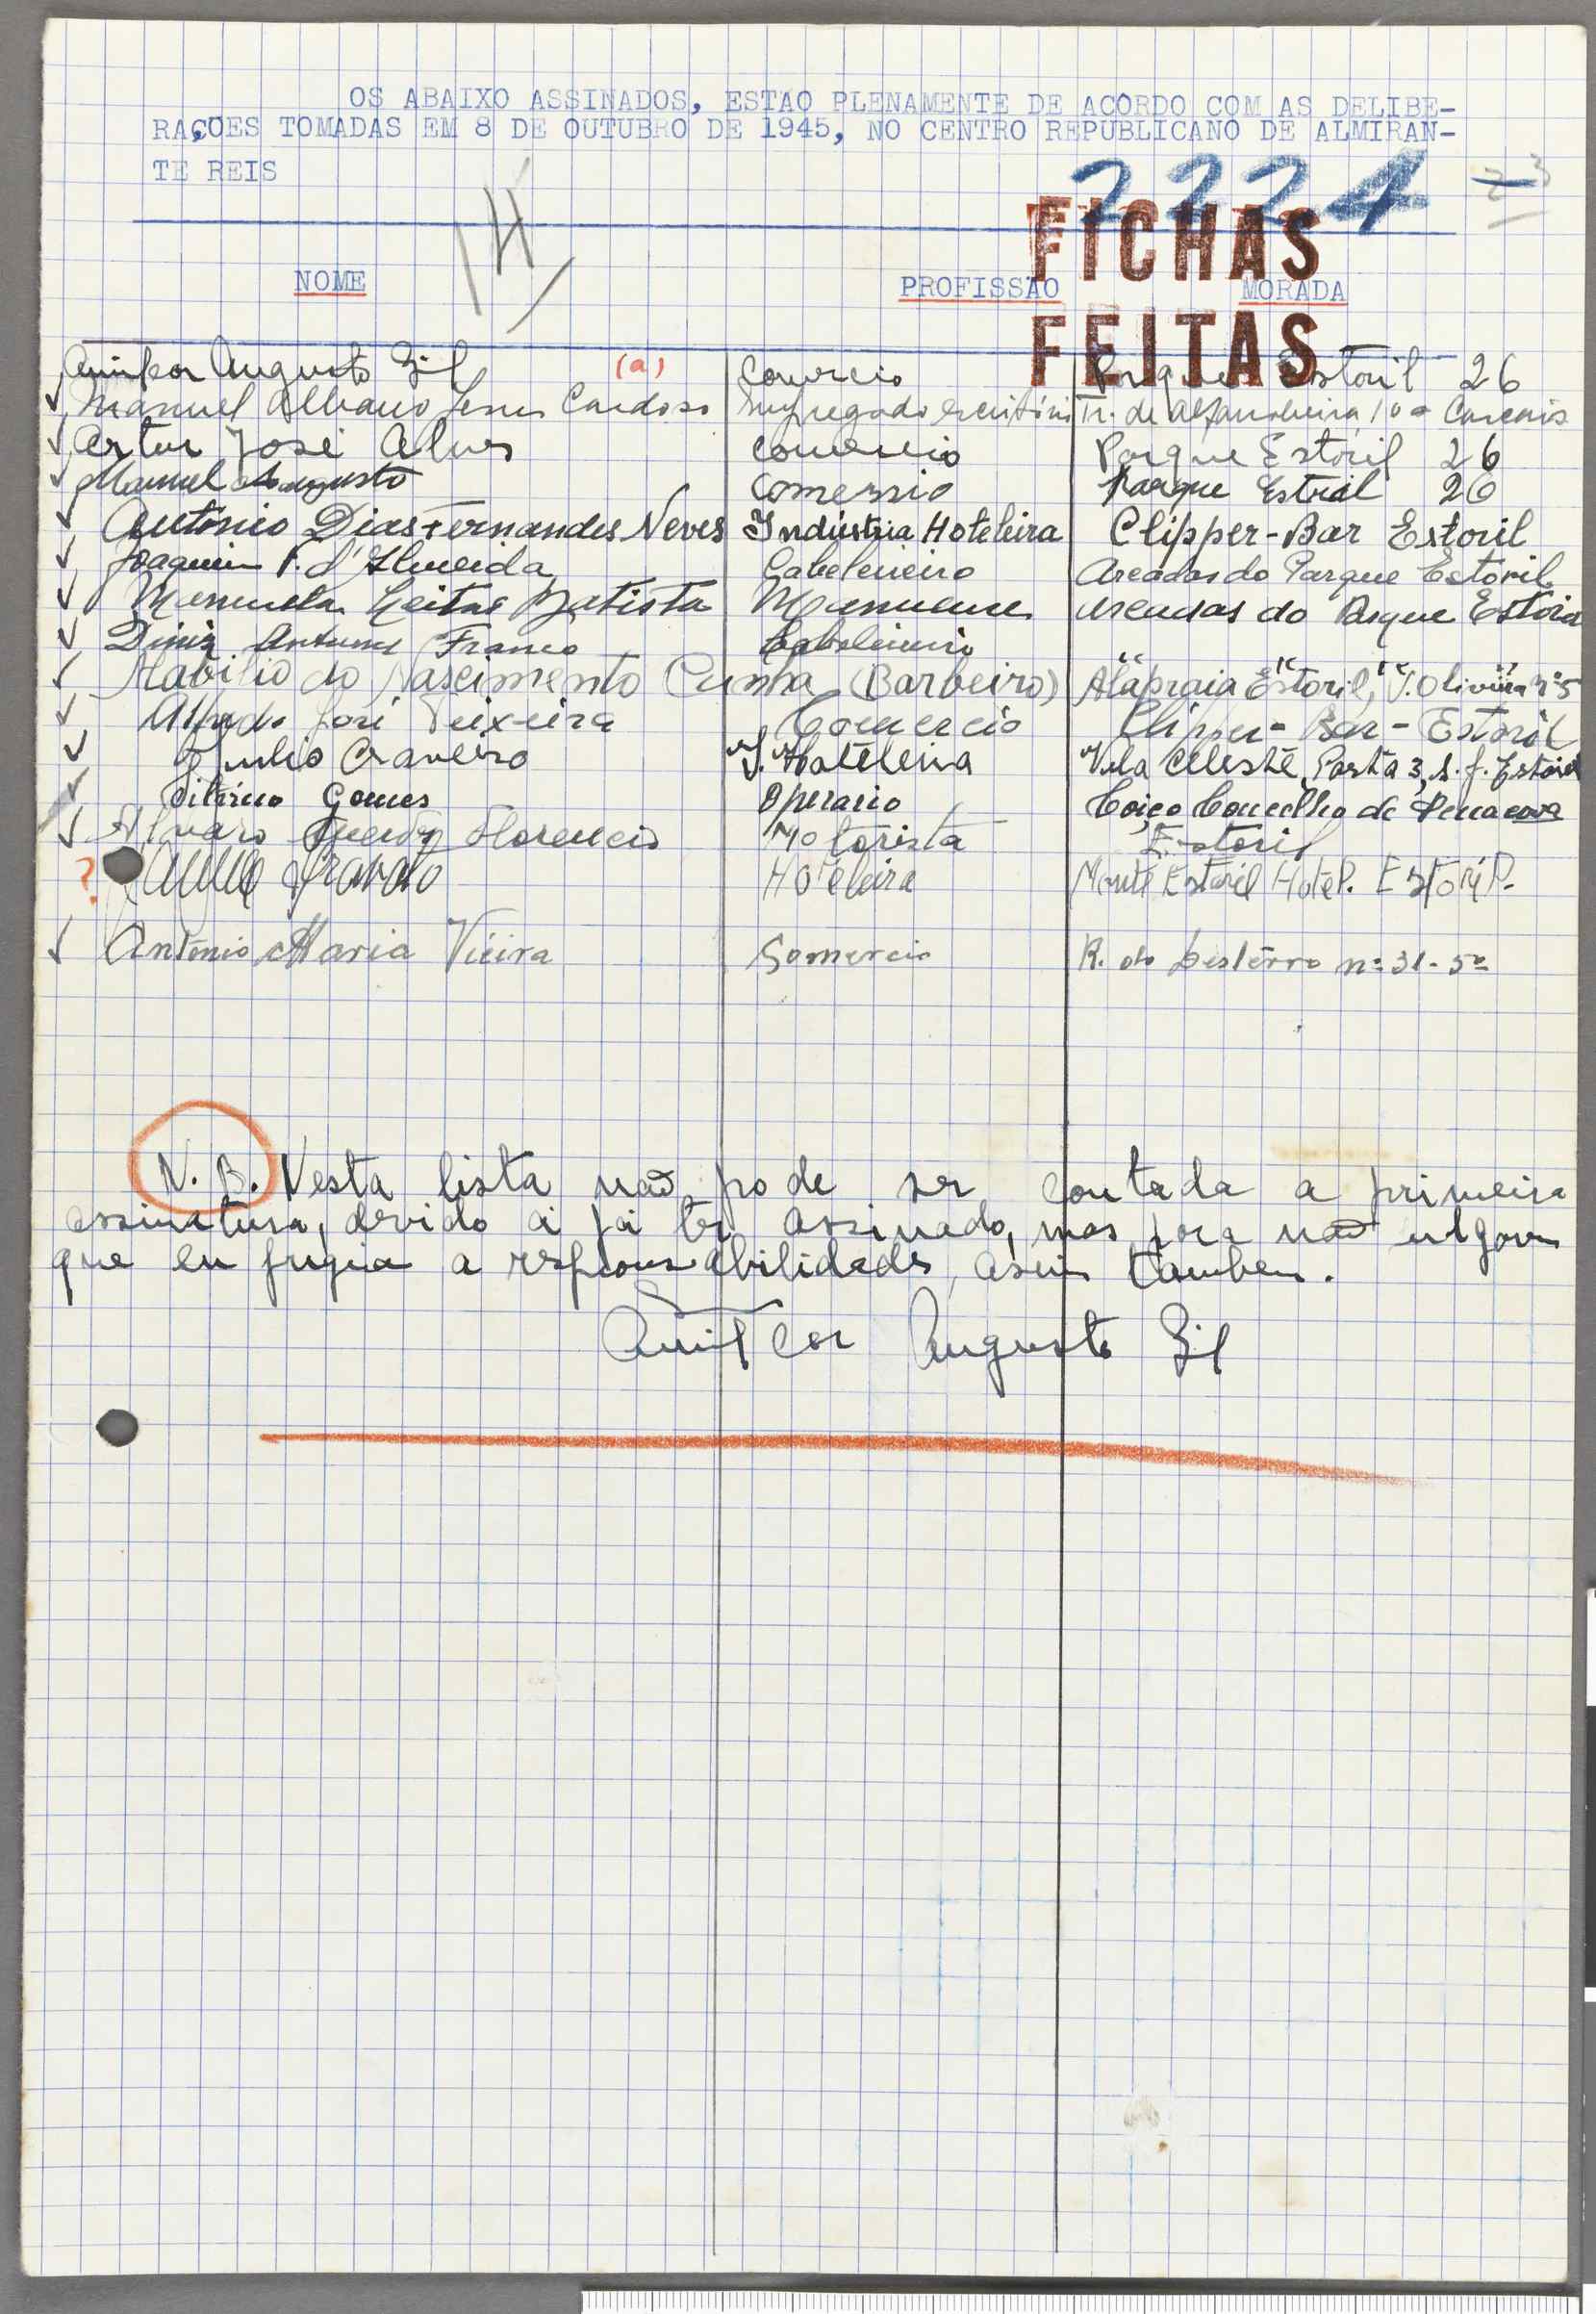 OS ABAIXO ASSINADOS, ESTAO PLENAMENTE DE ACORDO COM AS DELIBE-
RAÇOES TOMADAS EM 8 DE OUTUBRO DE 1945, NO CENTRO REPUBLICANO DE ALMIRAN-
TE REIS
2221
14
FICHAS
FEITAS
NOME PROFISSAO MORADA
Augusto Gil (a) Comercio Parque Estoril 26
Manuel Albano Jesus Cardoso Empregado escritório Tr. de Alfarrobeira, 10 Cascais
Artur José Alves Comercio Parque Estoril 26
Manuel Augusto Comersio Parque Estoril 26
António Dias Fernandes Neves Indústria Hoteleira Clipper-Bar Estoril
Joaquim P. d'Almeida Cabeleireiro Arcadas do Parque Estoril
Manuela Leitão Batista Manucure Arcadas do Parque Estoril
Diniz Antunes Franco Cabeleireiro " " " "
Abilio do Nascimento Cunha (Barbeiro) Alapraia Estoril, V. Oliveira nº5
Alfredo José Teixeira Comercio Clipper-Bar-Estoril
Julio Craveiro I. Hoteleira Vila Celeste, Porta 3, S. J. Estoril
Gomes Operario Coiço Concelho de Penacova
Alvaro Florencio Motorista Estoril
? Hoteleira Monte Estoril Hotel. Estoril.
António Maria Vieira Comercio R. do Destêrro nº 31-5º
N.B. Nesta lista não pode ser contada a primeira
assinatura, devido a já ter assinado, mas para não julgarem
que eu fugia a responsabilidades, assino tambem.
Augusto Gil